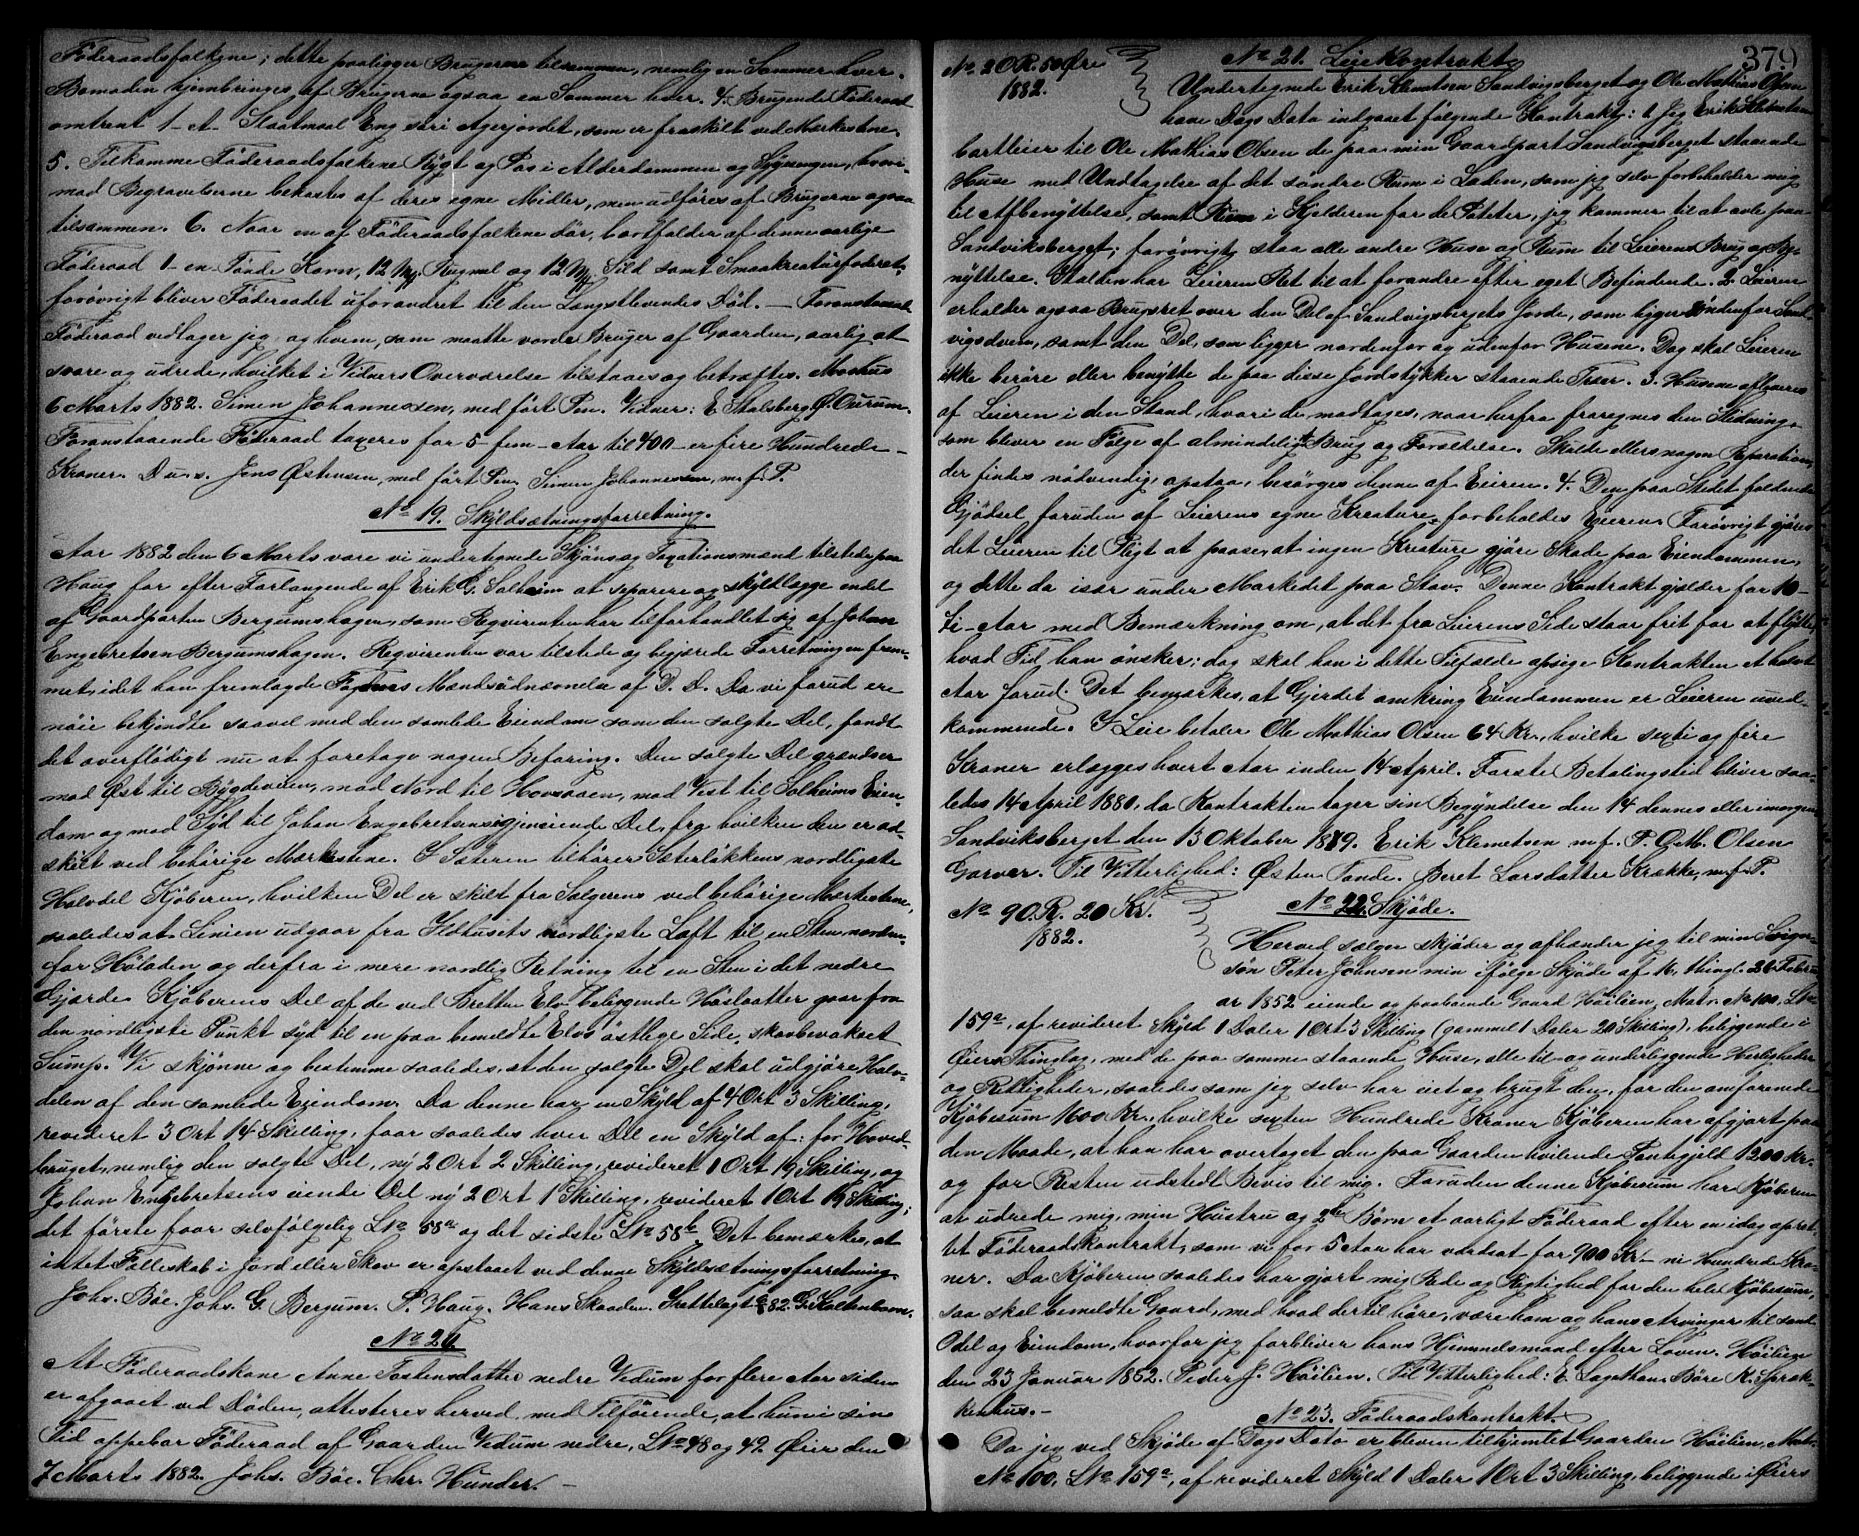 Föderaadsfolkene; dette paaligger Brugerne tilsammen, nemlig en Sommer hver.
Bomaden hjembringes af Brugerne ogsaa en Sommer hver. 4. Brugende Föderaad
omtrent 1 - et - Staatmaal Eng i Agerjordet, som er fraskilt ved Merkestene.
5. Tilkomme Föderaadsfolkene Rygt og Pas i Alderdommen og Sygesengen, hvori-
mod Begravelserne bekostes af deres egne Midler, men udföres af Brugerne ogsaa
tilsammen. 6. Naar en af Föderaadsfolkene dör, bortfalder af denne aarlige
Föderaad 1 - en - Tönde Korn, 12 Mk Rugmel og 12 Mk Sild samt Smaakreaturfoderet,
forövrigt bliver Föderaadet uforandret til den Længstlevendes Död. — Foranstaaende
Föderaad vedtager jeg, og hvem, som maatte vorde Bruger af Gaarden, aarlig at
svare og udrede, hvilket i Vidners Overværelse tilstaaes og bekræftes. Moshus
6 Marts 1882. Simen Johannessen, med fört Pen. Vidner: E. Stalsberg, G. Ourum.
Foranstaaende Föderaad taxeres for 5 - fem - Aar til 400 - er fire Hundrede -
Kroner. D. u. s. Jens Østensen, med fört Pen. Simen Johannessen, m. f. P.
No 19. Skyldsætningsforretning.
Aar 1882 den 6 Marts vare vi undertegnede Skjöns og Taxationsmænd tilstede paa
Haug for efter Forlangende af Erik G. Solheim at separere og skyldlægge endel
af Gaardparten Bergumshagen, som Reqvirenten har tilforhandlet sig af Johan
Engebretsen Bergumshagen. Reqvirenten var tilstede og begjærede Forretningen frem-
met, idet han fremlagde Fogdens Mændsudnævnelse af D. D. Da vi forud ere
nöie bekjendte saavel med den samlede Eiendom som den solgte Del, fandt
det overflödigt nu at foretage nogen Befaring. Den solgte Del grændser
mod Øst til Bygdeveien, mod Nord til Hovsaaen, mod Vest til Solheims Eien-
dom og mod Syd til Johan Engebretsens igjenværende Del, fra hvilken den er ad-
skilt ved behörige Merkestene. I Sæteren tilhörer Sæterløkkens nordligste
Halvdel Kjöberen, hvilken Del er skilt fra Sælgerens ved behörige Merkestene,
saaledes at Linien udgaar fra Ildhusets nordligste Loft til en Sten norden-
for Höladen og derfra i mere nordlig Retning til en Sten i det nedre
Gjærde. Kjöberens Del af de ved Bretten Elv beliggende Höslaatter gaar fra
den nordligste Punkt syd til en paa bemeldte Elvs östlige Side, skovbevokset
Sump. Vi skjönne og bestemme saaledes, at den solgte Del skal udgjöre Halv-
delen af den samlede Eiendom. Da denne har en Skyld af 4 Ort 3 Skilling,
revideret 3 Ort 14 Skilling, faar saaledes hver Del en Skyld af: for Hoved-
bruget, nemlig den solgte Del, ny 2 Ort 2 Skilling, revideret 1 Ort 19 Skilling, og
Johan Engebretsens eiende Del ny 2 Ort 1 Skilling, revideret 1 Ort 19 Skilling;
det förste faar selvfölgelig LNo 58a og det sidste LNo 58b. Det bemærkes, at
intet Fælleskab i Jord eller Skov er opstaaet ved denne Skyldsætningsforretning.
Johs. Böe. Johs. G. Bergum. P. Haug. Hans Skaaden. 82. G. Kaltenborn.
No 20.
At Föderaadskone Anne Tostensdatter nedre Vedum for flere Aar siden
er afgaaet ved Döden, attesteres herved med Tilföiende, at hun i sin
Tid oppebar Föderaad af Gaarden Vedum nedre, LNo 48 og 49. Øier den
7 Marts 1882. Johs. Böe. Chr. Hunder. —
379
No 20 R. 50 Øre
1882.
No 21. Leiekontrakt.
Undertegnede Erik Klemetsen Sandvigsberget og Ole Mathias Olsen
have Dags Dato indgaaet fölgende Kontrakt: 1 Jeg Erik Klemetsen
bortleier til Ole Mathias Olsen de paa min Gaardpart Sandvigsberget staaende
Huse med Undtagelse af det söndre Rum i Laden, som jeg selv forbeholder mig
til Afbenyttelse, samt Rum i Kjelderen for de Poteter, jeg kommer til at avle paa
Sandviksberget; forövrigt staa alle andre Huse og Rum til Leierens Brug og Be-
nyttelse. Stalden har Leieren Ret til at forandre efter eget Befindende. 2. Leieren
erholder ogsaa Brugsret over den Del af Sandvigsbergets Jorde, som ligger söndenfor Sand-
vigsdven, samt den Del, som ligger nordenfor og udenfor Husene. Dog skal Leieren
ikke beröre eller benytte de paa disse Jordstykker staaende Træer. 3. Husene afleveres
af Leieren i den Stand, hvori de modtages, naar herfra fraregnes den Slidning,
som bliver en Fölge af almindeligt Brug og Forældelse. Skulde ellers nogen Reparation,
der findes nödvendig, opstaa, besörges denne af Eieren. 4. Den paa Stedet faldende
Gjödsel foruden af Leierens egne Kreature forbeholdes Eieren. Forövrigt gjöres
det Leieren til Pligt at paase, at ingen Kreature gjöre Skade paa Eiendommen,
og dette da især under Markedet paa Stav. Denne Kontrakt gjælder for 10 -
ti - Aar med Bemærkning om, at det fra Leierens Side staar frit for at flytte,
hvad Tid han önsker; dog skal han i dette Tilfælde opsige Kontrakten et halvt
Aar forud. Det bemærkes, at Gjerdet omkring Eiendommen er Leieren uved-
kommende. I Leie betaler Ole Mathias Olsen 64 Kr., hvilke sexti og fire
Kroner erlægges hvert Aar inden 14 April. Förste Betalingstid bliver saa-
ledes 14 April 1880, da Kontrakten tager sin Begyndelse den 14 dennes eller imorgen.
Sandviksberget den 13 Oktober 1879. Erik Klemetsen m. f. P. O. M. Olsen
Garver. Til Vitterlighed: Østen Tande. Beret Larsdatter Krække, m. f. P.
No 90 R. 20 Kr.
1882.
No 22. Skjöde.
Herved sælger skjöder og afhænder jeg til min Sviger-
sön Peter Johnsen min ifölge Skjöde af   thingl. 26 Febru-
ar 1852 eiende og paaboende Gaard Höilien, Matr. No 100, LNo
159a, af revideret Skyld 1 Daler 1 Ort 3 Skilling (gammel 1 Daler 20 Skilling), beliggende i
Øiers Thinglag, med de paa samme staaende Huse, alle til- og underliggende Herligheder
og Rettigheder, saaledes som jeg selv har eiet og brugt den, for den omforenede
Kjöbesum 1600 Kr., hvilke sexten Hundrede Kroner Kjöberen har afgjort paa
den Maade, at han har overtaget den paa Gaarden hvilende Pantegjeld 1200 Kr.
og for Resten udstedt Bevis til mig. Foruden denne Kjöbesum har Kjöberen
at udrede mig, min Hustru og 2de Börn et aarligt Föderaad efter en idag opret-
tet Föderaadskontrakt, som vi for 5 Aar har værdsat for 900 Kr. - ni Hundrede Kro-
ner. Da Kjöberen saaledes har gjort mig Rede og Rigtighed for den hele Kjöbesum,
saa skal bemeldte Gaard, med hvad dertil hörer, være ham og hans Arvinger til sand
Odel og Eiendom, hvorfor jeg forbliver hans Hjemmelsmand efter Loven. Höilien
den 23 Januar 1852. Peder J. Höilien. Til Vitterlighed: E. Lagethon. Böre R. Spræk-
kenhus. —
No 23. Föderaadskontrakt.
Da jeg ved Skjöde af Dags Dato er bleven tilhjemlet Gaarden Höilien, Matr.
No 100, LNo 159a, af revideret Skyld 1 Daler 1 Ort 3 Skilling, beliggende i Øiers